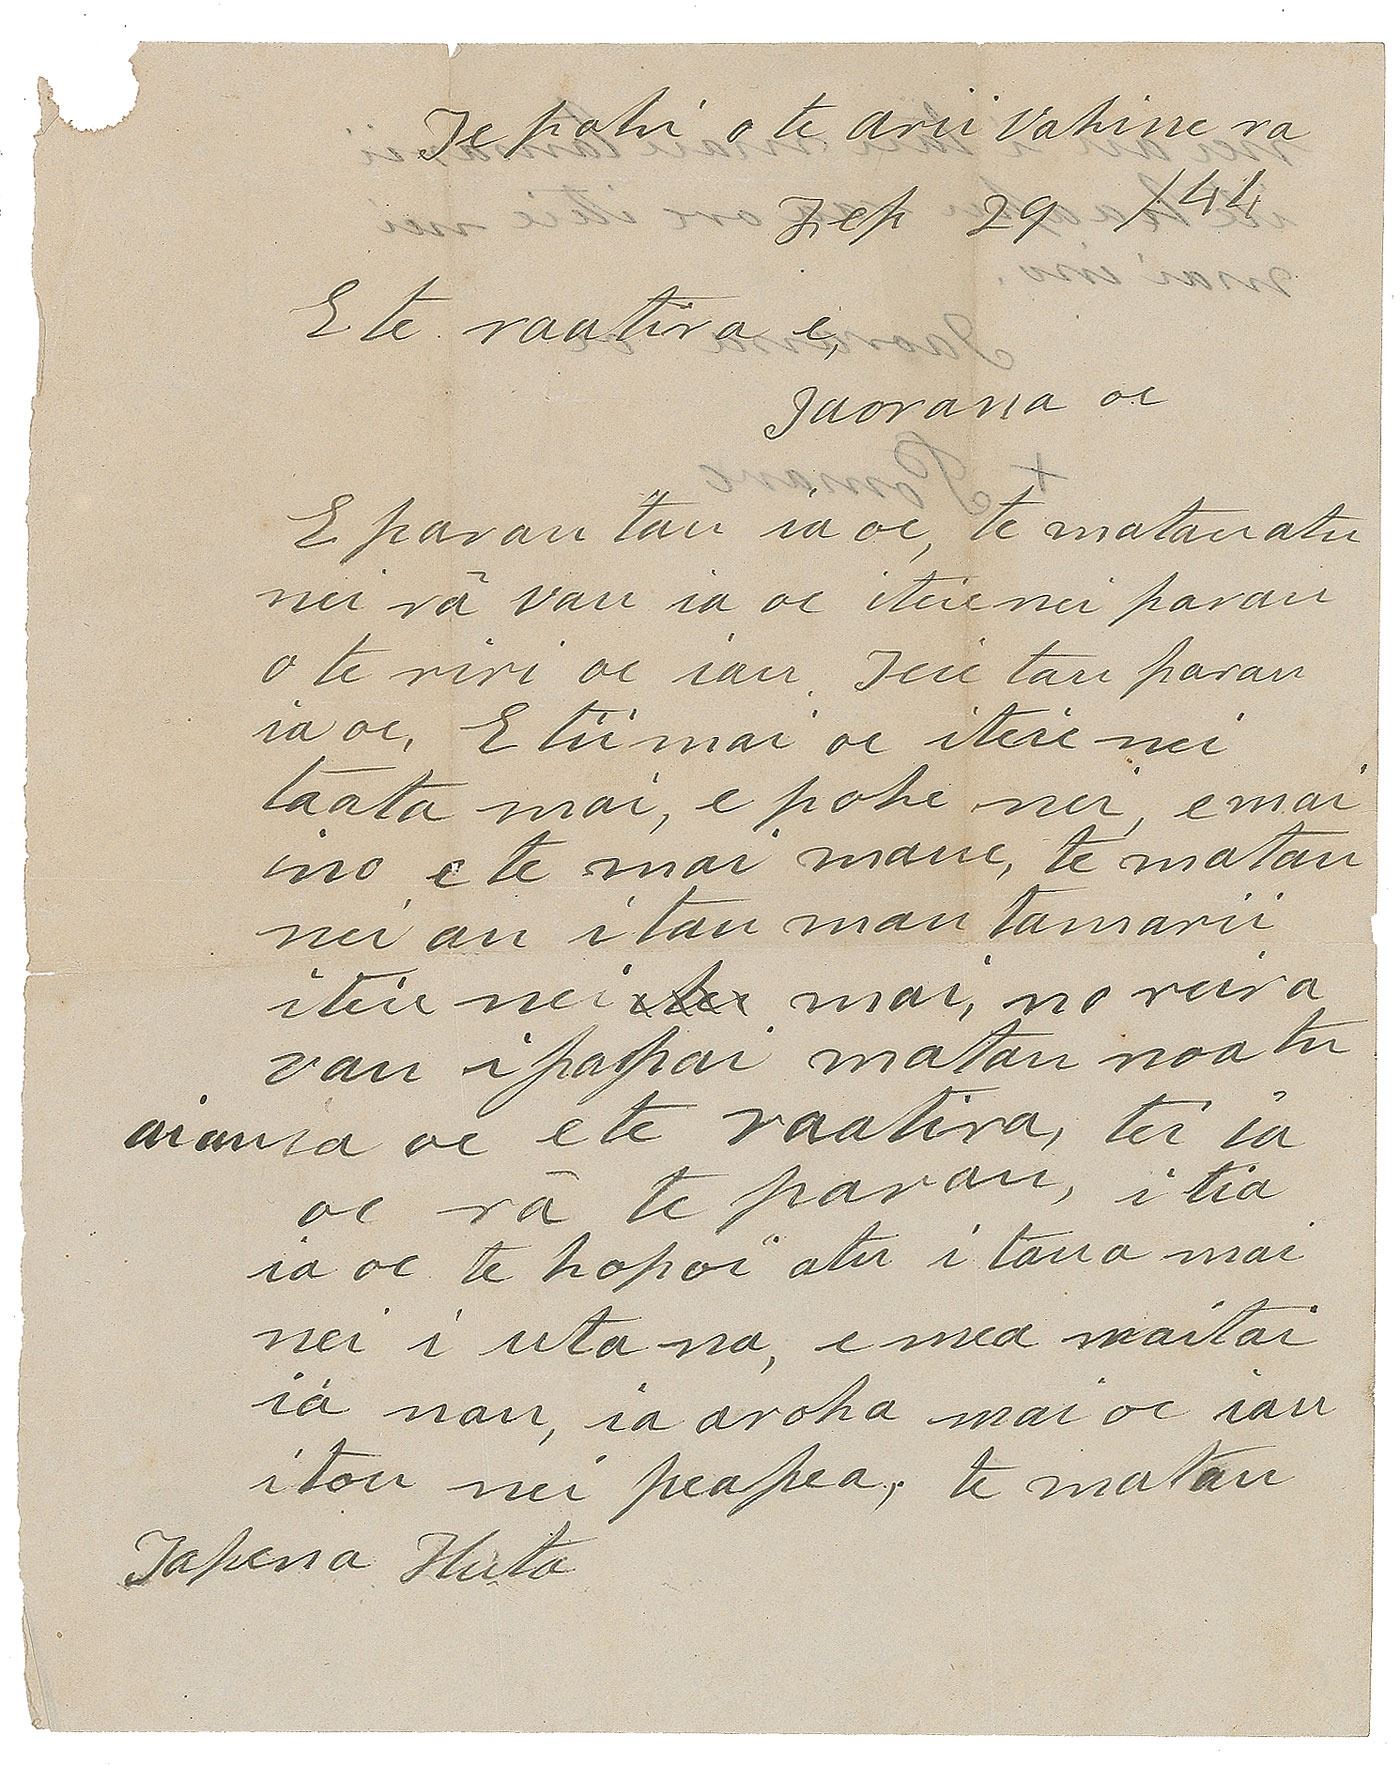 Te pohi o te Arii Vahine ra
Sep 29 /44
E te raatira e,
Iaorana oe
E parau tau ia oe, te matau atu
nei rā vau ia oe i teie nei parau
o te riri oe iau. Teie tau parau
ia oe, E tii mai oe i teie nei
taata mai, e pohe nei, e mai
ino e te mai maue, te matau
nei au i tau mau tamarii
i teie nei mai, no reira
vau i papai matau noa tu
ai au ia oe e te raatira, tei ia
oe rā te parau, i tia
ia oe te hopoi atu i taua mai
nei i uta na, e mea maitai
ia nau, ia aroha mai oe iau
i tou nei peapea, te matau
Tapena Huta
nei au i tau mau tamarii
mai ino.
Iaorana oe
+ Pomare